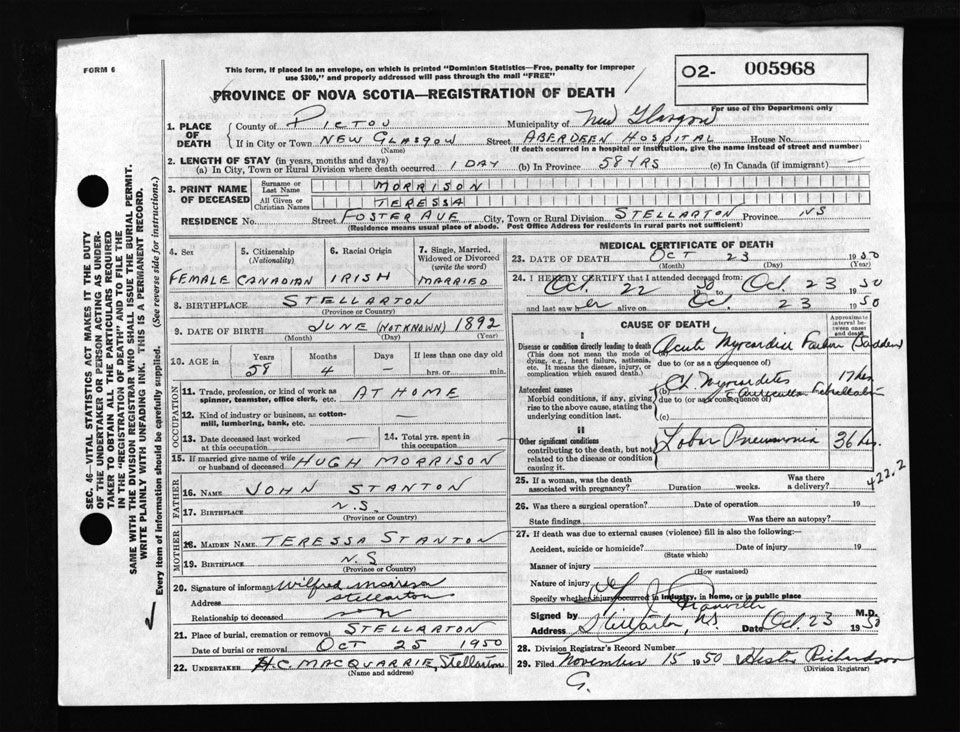 FORM 6
This form, if placed in an envelope, on which is printed "Dominion Statistics—Free, penalty for improper
use $300," and properly addressed will pass through the mail "FREE"
O2- 005968
For use of the Department only
PROVINCE OF NOVA SCOTIA—REGISTRATION OF DEATH
1. PLACE OF DEATH
County of PICTOU Municipality of New Glasgow
If in City or Town NEW GLASGOW Street ABERDEEN HOSPITAL House No.
(Name) (If death occurred in a hospital or institution, give the name instead of street and number)
2. LENGTH OF STAY (in years, months and days)
(a) In City, Town or Rural Division where death occurred 1 DAY (b) In Province 58 YRS (c) In Canada (if immigrant) —
3. PRINT NAME OF DECEASED
Surname or Last Name MORRISON
All Given or Christian Names TERESSA
RESIDENCE No. Street FOSTER AVE City, Town or Rural Division STELLARTON Province NS
(Residence means usual place of abode. Post Office Address for residents in rural parts not sufficient)
4. Sex 5. Citizenship (Nationality) 6. Racial Origin 7. Single, Married, Widowed or Divorced (write the word)
FEMALE CANADIAN IRISH MARRIED
8. BIRTHPLACE STELLARTON
(Province or Country)
9. DATE OF BIRTH JUNE (NOT KNOWN) 1892
(Month) (Day) (Year)
10. AGE in Years Months Days If less than one day old
58 4 — hrs. or min.
OCCUPATION
11. Trade, profession, or kind of work as spinner, teamster, office clerk, etc. AT HOME
12. Kind of industry or business, as cotton-mill, lumbering, bank, etc. —
13. Date deceased last worked at this occupation — 14. Total yrs. spent in this occupation —
15. If married give name of wife or husband of deceased HUGH MORRISON
FATHER
16. NAME JOHN STANTON
17. BIRTHPLACE N.S.
(Province or Country)
MOTHER
18. MAIDEN NAME TERESSA STANTON
19. BIRTHPLACE N.S
(Province or Country)
20. Signature of informant Wilfred
Address Stellarton
Relationship to deceased son
21. Place of burial, cremation or removal STELLARTON
Date of burial or removal OCT 25 1950
22. UNDERTAKER H.C. MACQUARRIE, Stellarton
(Name and address)
MEDICAL CERTIFICATE OF DEATH
23. DATE OF DEATH OCT 23 1950
(Month) (Day) (Year)
24. I HEREBY CERTIFY that I attended deceased from:
Oct. 22 50 to Oct. 23 1950
and last saw her alive on Oct. 23 1950
CAUSE OF DEATH
Approximate interval between onset and death
I
Disease or condition directly leading to death
(This does not mean the mode of dying, e.g., heart failure, asthenia, etc. It means the disease, injury, or complication which caused death.)
(a) Acute Myocardial Failure Sudden
due to (or as a consequence of)
Antecedent causes
Morbid conditions, if any, giving rise to the above cause, stating the underlying condition last.
(b) Ch. Myocarditis 17 hrs
due to (or as a consequence of)
(c)
II
Other significant conditions
contributing to the death, but not related to the disease or condition causing it.
Lobar Pneumonia 36 hrs.
422.2
25. If a woman, was the death associated with pregnancy? Duration weeks. Was there a delivery?
26. Was there a surgical operation? Date of operation 19
State findings Was there an autopsy?
27. If death was due to external causes (violence) fill in also the following:
Accident, suicide or homicide? Date of injury 19
(State which)
Manner of injury
(How sustained)
Nature of injury
Specify whether injury occurred in industry, in home, or in public place
Signed by M.D.
Address Stellarton, N.S. Date Oct. 23 1950
28. Division Registrar's Record Number
29. Filed November 15 1950 Hester Richardson
(Division Registrar)
G.
SEC. 46—VITAL STATISTICS ACT MAKES IT THE DUTY
OF THE UNDERTAKER OR PERSON ACTING AS UNDER-
TAKER TO OBTAIN ALL THE PARTICULARS REQUIRED
IN THE "REGISTRATION OF DEATH" AND TO FILE THE
SAME WITH THE DIVISION REGISTRAR WHO SHALL ISSUE THE BURIAL PERMIT.
WRITE PLAINLY WITH UNFADING INK. THIS IS A PERMANENT RECORD.
Every item of information should be carefully supplied. (See reverse side for instructions.)